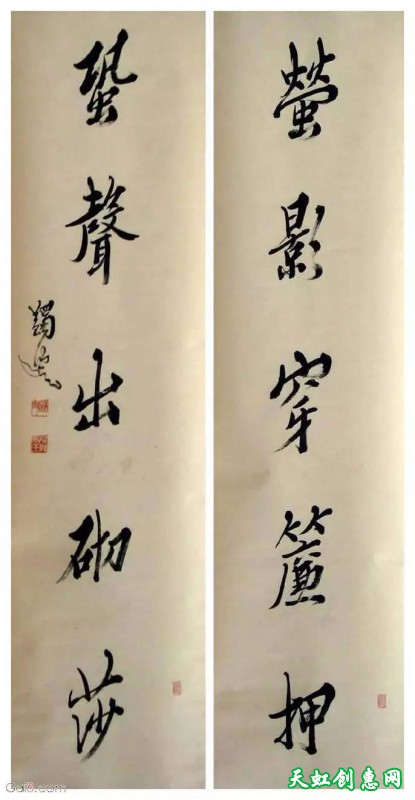 螢影穿簾押
蛩聲出砌莎
蠲叟
Gai8.com
天虹创惠网